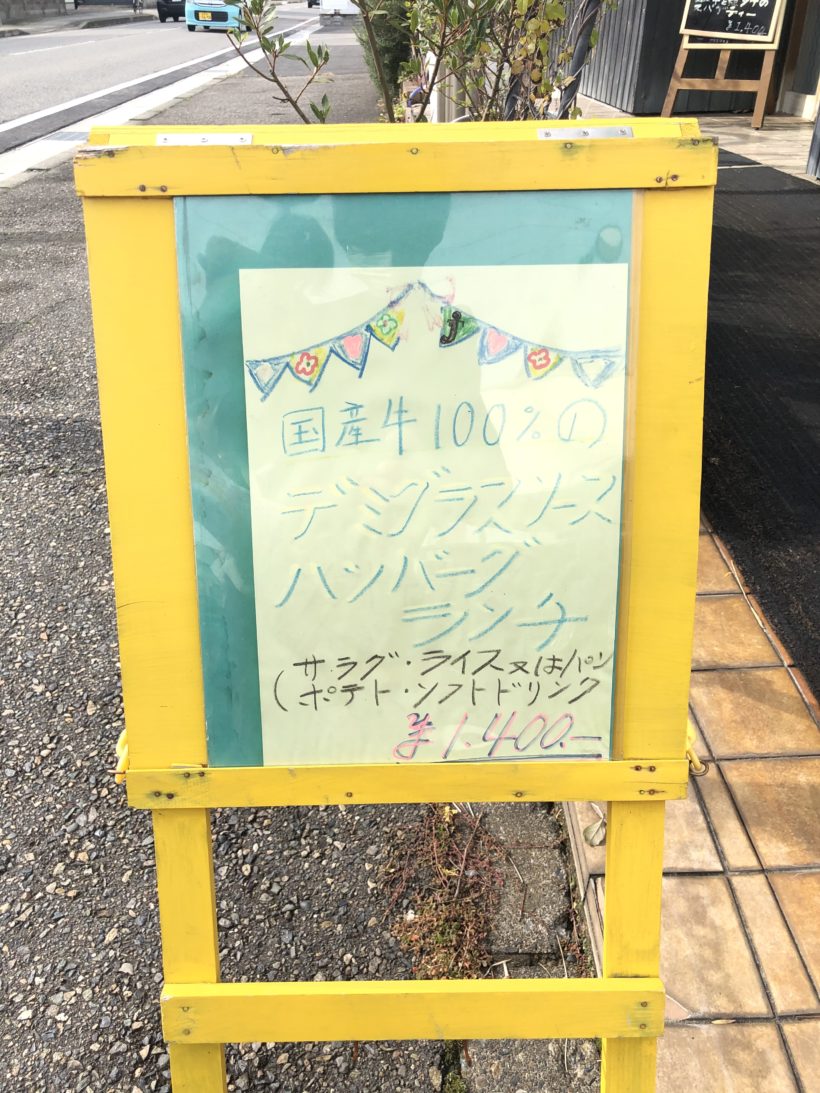 国産牛100%の
デミグラスソース
ハンバーグ
ランチ
(サラダ・ライス又はパン
ポテト・ソフトドリンク
¥1.400.—
¥1,400